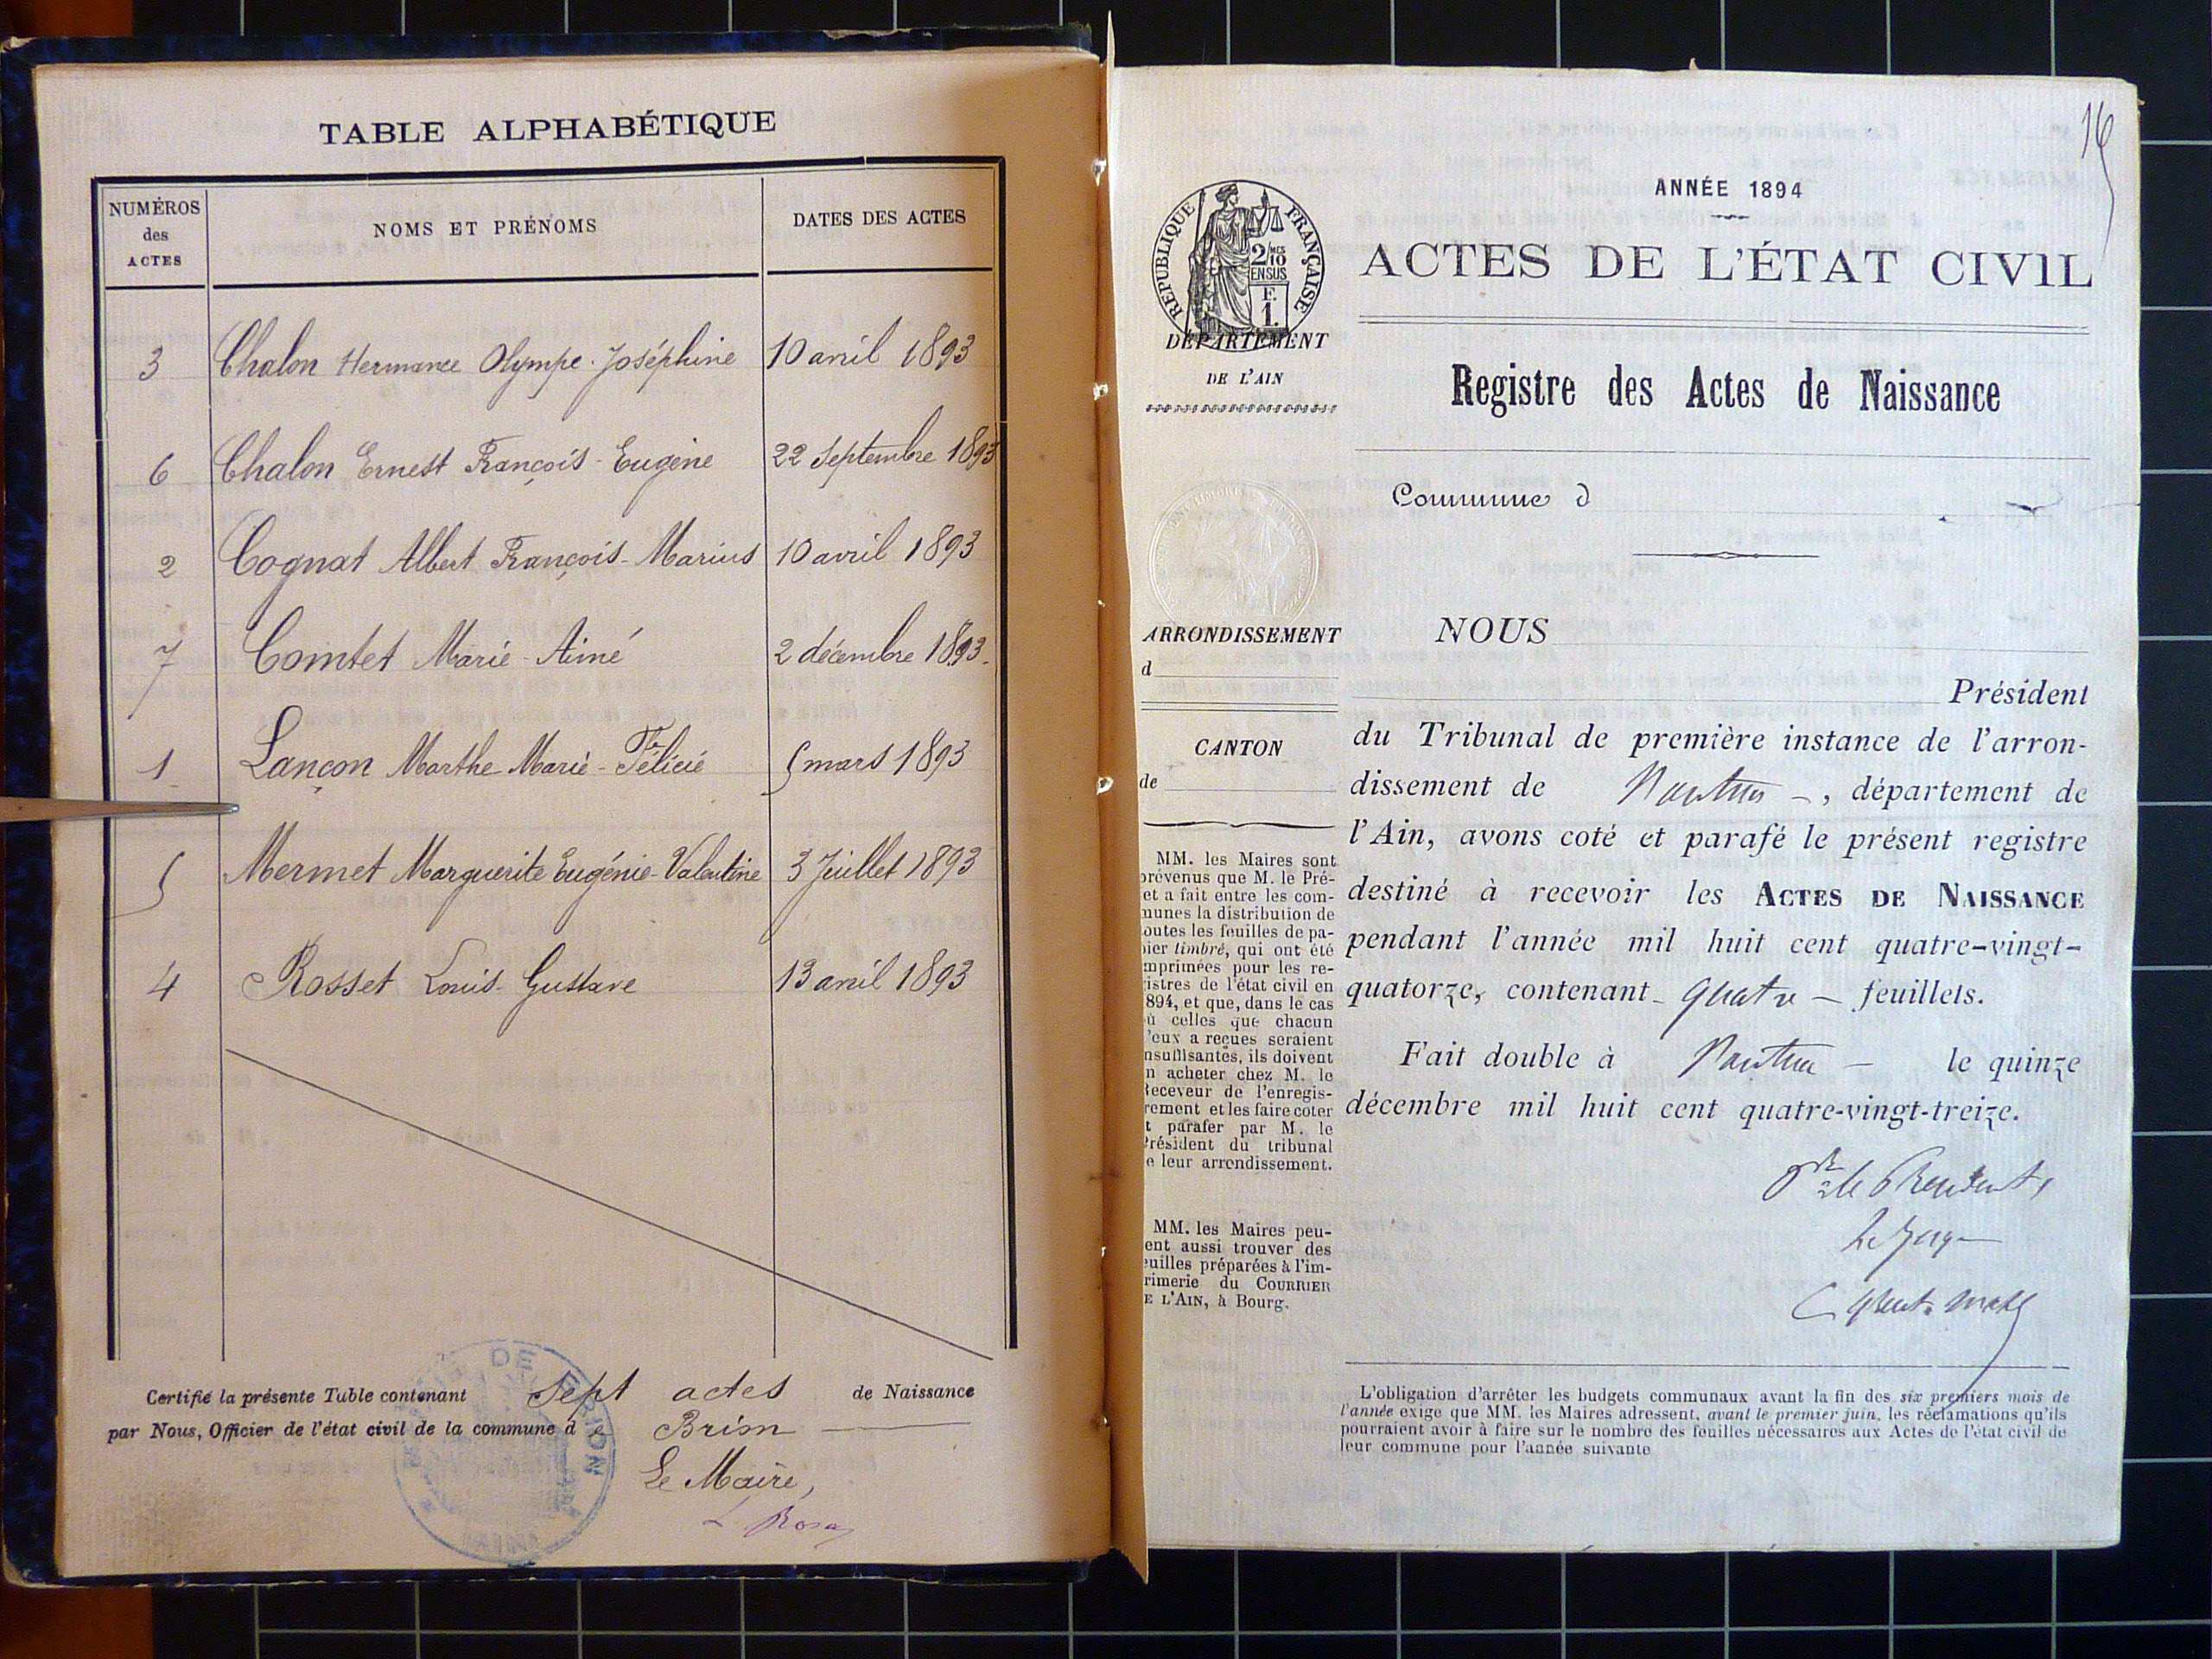 TABLE ALPHABÉTIQUE
NUMÉROS des ACTES
NOMS ET PRÉNOMS
DATES DES ACTES
3 Chalon Hermance Olympe-Joséphine 10 avril 1893
6 Chalon Ernest François-Eugène 22 Septembre 1893
2 Cognat Albert François-Marius 10 avril 1893
7 Comtet Marie-Aimé 2 décembre 1893.
1 Lançon Marthe Marie-Félicie 5 mars 1893
5 Mermet Marguerite Eugénie-Valentine 3 Juillet 1893
4 Rosset Louis-Gustave 13 avril 1893
Certifié la présente Table contenant Sept actes de Naissance
par Nous, Officier de l'état civil de la commune de Brion
Le Maire,
DE BRION
16
ANNÉE 1894
ACTES DE L'ÉTAT CIVIL
RÉPUBLIQUE FRANÇAISE
2/10 MES
EN SUS
F.
1.
DÉPARTEMENT
DE L'AIN
Registre des Actes de Naissance
Commune d
ARRONDISSEMENT
d
CANTON
de
MM. les Maires sont
prévenus que M. le Pré-
et a fait entre les com-
munes la distribution de
outes les feuilles de pa-
pier timbré, qui ont été
mprimées pour les re-
gistres de l'état civil en
894, et que, dans le cas
ù celles que chacun
'eux a reçues seraient
nsuffisantes, ils doivent
n acheter chez M. le
Receveur de l'enregis-
rement et les faire coter
t parafer par M. le
Président du tribunal
e leur arrondissement.
MM. les Maires peu-
ent aussi trouver des
euilles préparées à l'im-
rimerie du COURRIER
E L'AIN, à Bourg.
NOUS
Président
du Tribunal de première instance de l'arron-
dissement de Nantua -, département de
l'Ain, avons coté et parafé le présent registre
destiné à recevoir les ACTES DE NAISSANCE
pendant l'année mil huit cent quatre-vingt-
quatorze, contenant quatre feuillets.
Fait double à Nantua - le quinze
décembre mil huit cent quatre-vingt-treize.
Pr le Président,
Le Juge
L'obligation d'arrêter les budgets communaux avant la fin des six premiers mois de
l'année exige que MM. les Maires adressent, avant le premier juin, les réclamations qu'ils
pourraient avoir à faire sur le nombre des feuilles nécessaires aux Actes de l'état civil de
leur commune pour l'année suivante